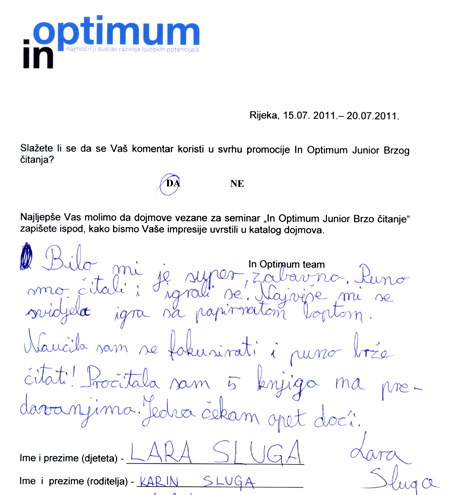 in optimum
najmoćniji sustav razvoja ljudskih potencijala
Rijeka, 15.07. 2011.– 20.07.2011.
Slažete li se da se Vaš komentar koristi u svrhu promocije In Optimum Junior Brzog
čitanja?
DA NE
Najljepše Vas molimo da dojmove vezane za seminar „In Optimum Junior Brzo čitanje“
zapišete ispod, kako bismo Vaše impresije uvrstili u katalog dojmova.
In Optimum team
Bilo mi je super, zabavno. Puno
smo čitali i igrali se. Najviše mi se
svidjela igra sa papirnatom loptom.
Naučila sam se fokusirati i puno brže
čitati! Pročitala sam 5 knjiga na pre-
davanjima. Jedva čekam opet doći.
Ime i prezime (djeteta) - LARA SLUGA
Lara
Sluga
Ime i prezime (roditelja) - KARIN SLUGA